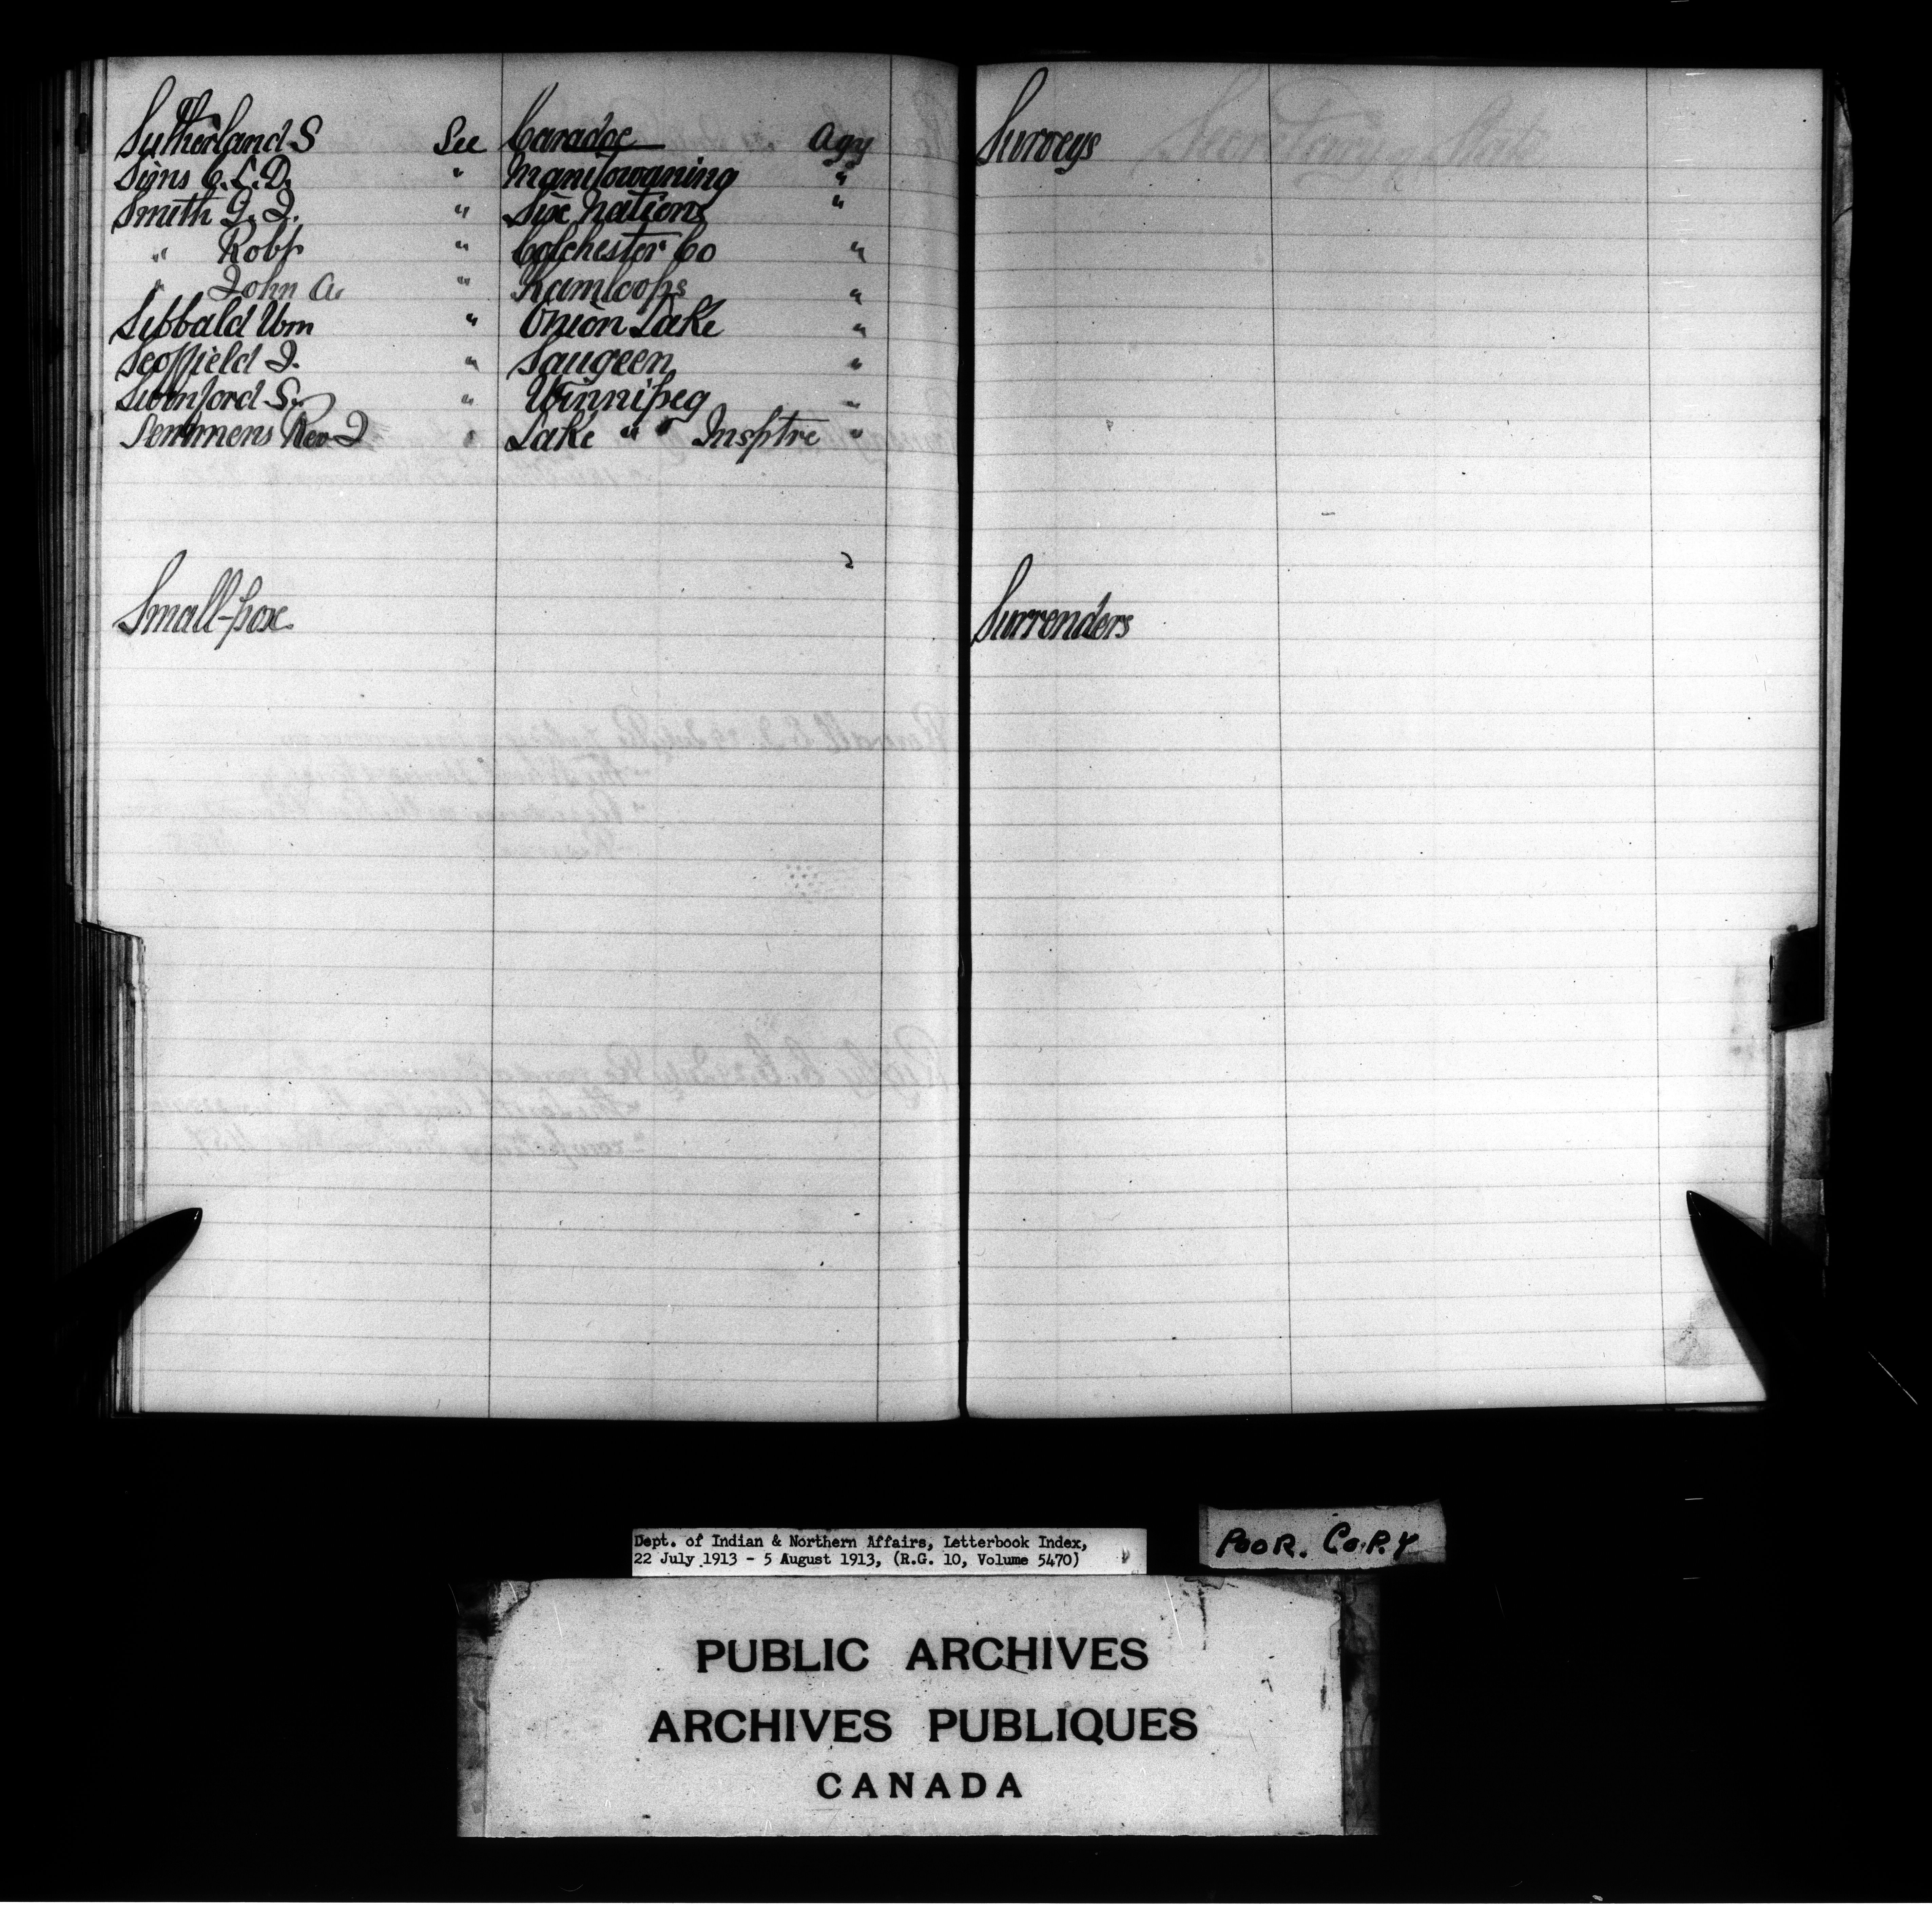 Sutherland S See Caradoc Agy
Sims C.L.D. " Manitowaning "
Smith G. J. " Six Nations "
" Robt " Colchester Co "
" John A. " Kamloops "
Sibbald Wm " Onion Lake "
Scoffield J. " Saugeen "
Swinford S. " Winnipeg "
Semmens Rev J " Lake " Insptre "
Small-pox
Surveys
Secretary of State
Surrenders
Dept. of Indian & Northern Affairs, Letterbook Index,
22 July 1913 - 5 August 1913, (R.G. 10, Volume 5470)
POOR. COPY
PUBLIC ARCHIVES
ARCHIVES PUBLIQUES
CANADA